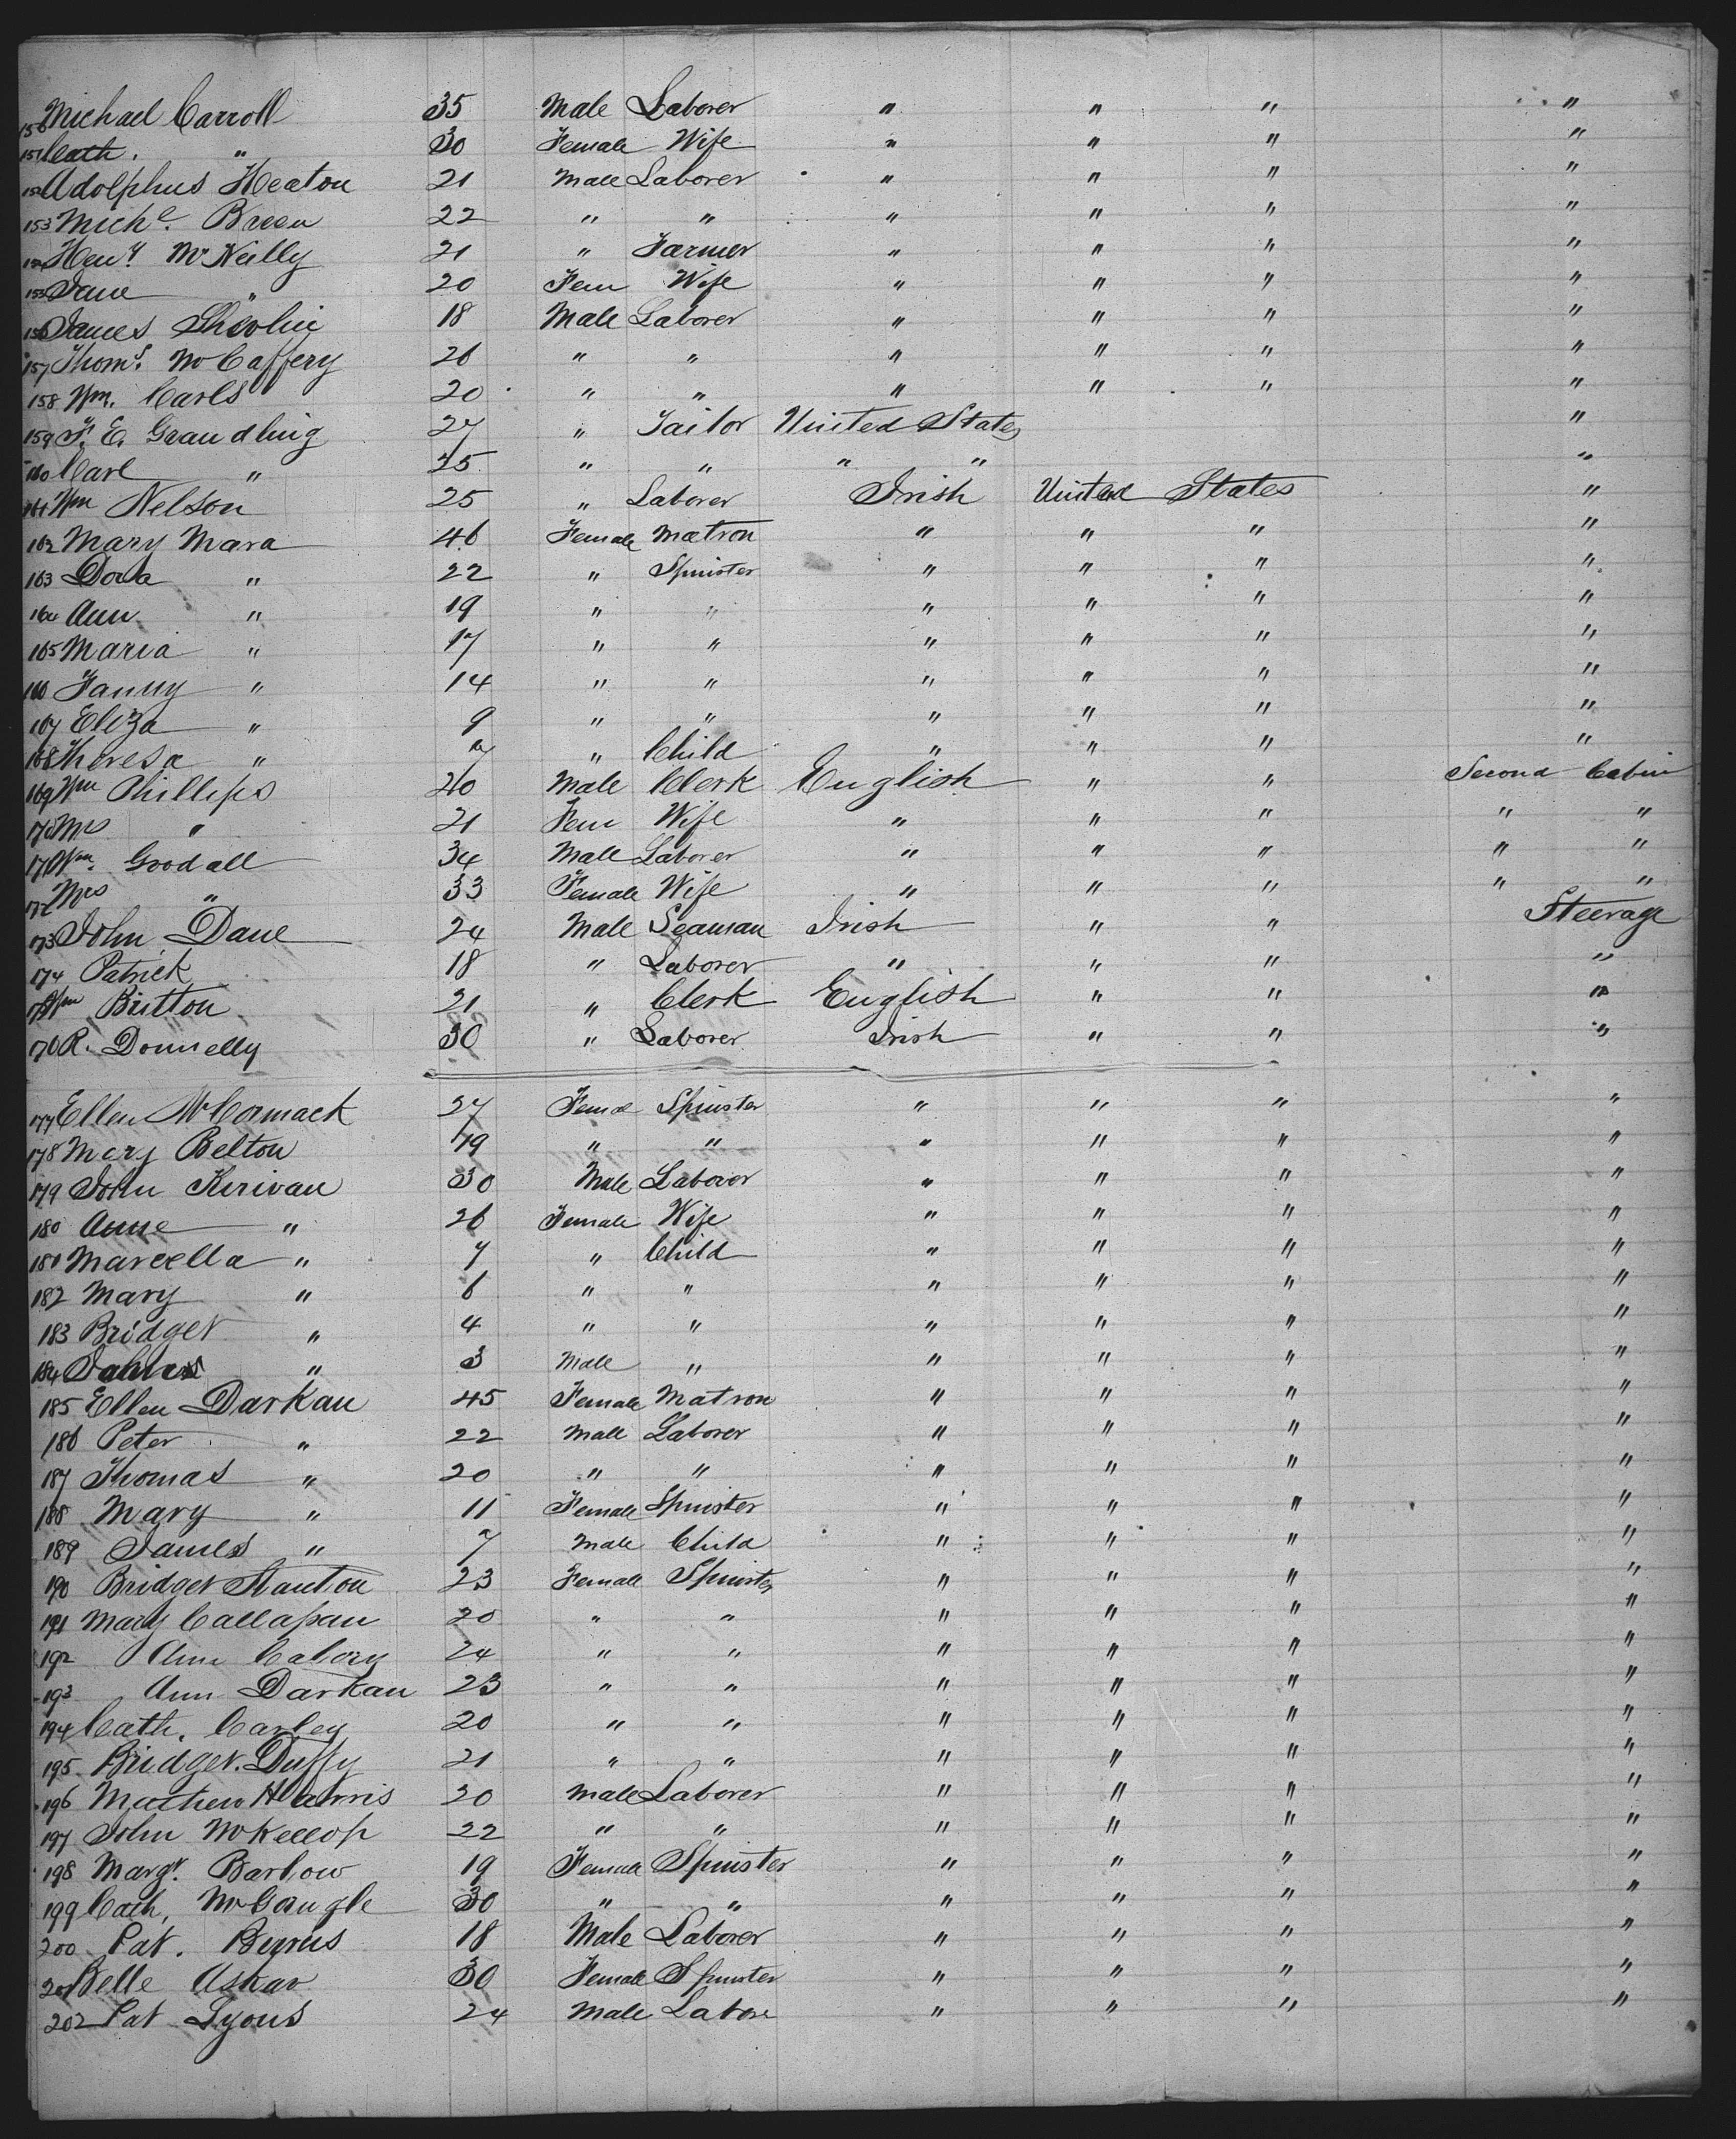 150 Michael Carroll 35 Male Laborer " " " "
151 Cath. " 30 Female Wife " " " "
152 Adolphus Heaton 21 Male Laborer " " " "
153 Mich.l Breen 22 " " " " " "
154 Hen.y McNeilly 21 " Farmer " " " "
155 Jane " 20 Fem Wife " " " "
156 James Shevlin 18 Male Laborer " " " "
157 Thom.s McCaffery 26 " " " " " "
158 Wm. Carls 20 " " " " " "
159 F. E. Grandling 27 " Tailor United States "
160 Carl " 25 " " " " "
161 Wm Nelson 25 " Laborer Irish United States "
162 Mary Mara 46 Female Matron " " " "
163 Dora " 22 " Spinster " " " "
164 Ann " 19 " " " " " "
165 Maria " 17 " " " " " "
166 Fanny " 14 " " " " " "
167 Eliza " 9 " " " " " "
168 Theresa " 7 " Child " " " "
169 Wm Phillips 40 Male Clerk English " " Second Cabin
170 Mrs " 21 Fem Wife " " " " "
171 Wm. Goodall 34 Male Laborer " " " " "
172 Mrs " 33 Female Wife " " " " "
173 John Dane 24 Male Seaman Irish " " Steerage
174 Patrick 18 " Laborer " " " "
175 Wm Britton 21 " Clerk English " " "
176 R. Donnelly 30 " Laborer Irish " " "
177 Ellen McCormack 27 Female Spinster " " " "
178 Mary Belton 19 " " " " " "
179 John Kirivan 30 Male Laborer " " " "
180 Anne " 26 Female Wife " " " "
181 Marcella " 7 " Child " " " "
182 Mary " 6 " " " " " "
183 Bridget " 4 " " " " " "
184 " 3 Male " " " " "
185 Ellen Darkan 45 Female Matron " " " "
186 Peter " 22 Male Laborer " " " "
187 Thomas " 20 " " " " " "
188 Mary " 11 Female Spinster " " " "
189 James " 7 Male Child " " " "
190 Bridget Stanton 23 Female Spinster " " " "
191 Mary Callapan 20 " " " " " "
192 Ann 24 " " " " " "
193 Ann Darkan 23 " " " " " "
194 Cath. Carley 20 " " " " " "
195 Bridget. Duffy 21 " " " " " "
196 Mathew Harris 20 Male Laborer " " " "
197 John McKellop 22 " " " " " "
198 Margt. Barlow 19 Female Spinster " " " "
199 Cath, McGangle 30 " " " " " "
200 Pat. Byrns 18 Male Laborer " " " "
201 Belle Askar 30 Female Spinster " " " "
202 Pat Lyons 24 Male Labore " " " "